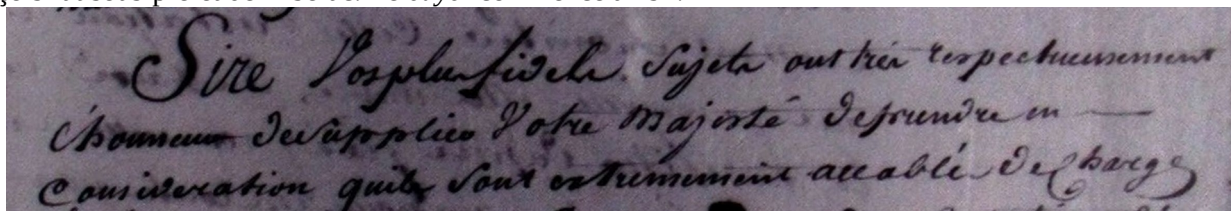 Sire Vos plus fidels Sujets ont tres respectueusement
l'honneur de Supplier Votre Majesté de prendre en
Consideration quils sont extremement accablé de Charge